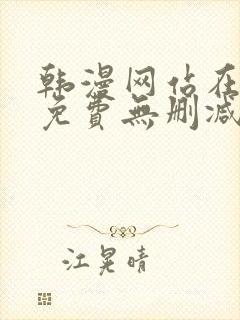 韩漫网站在
免費無删减
江晃晴